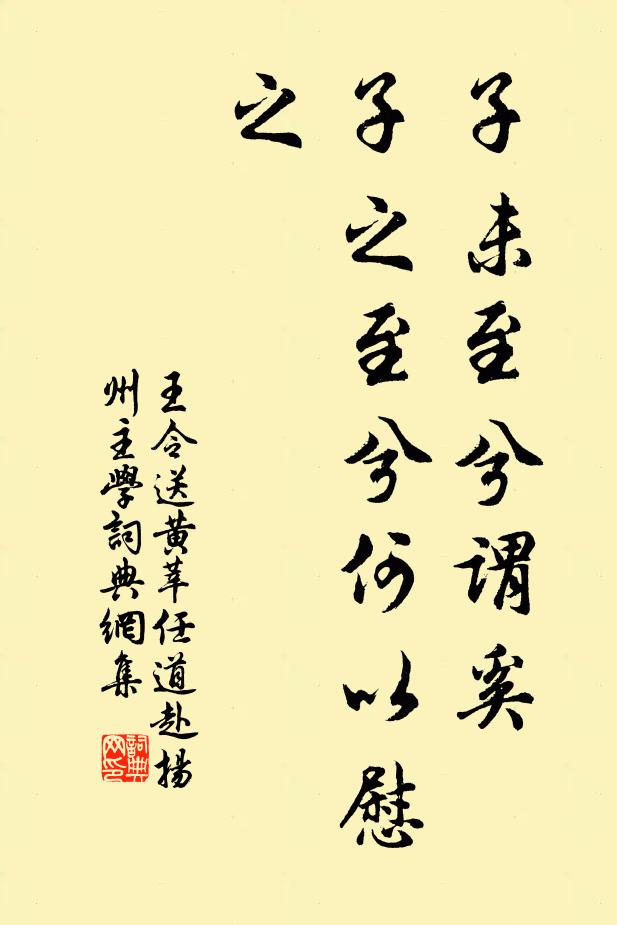 子未至兮謂奚
子之至兮何以慰
之
王令送黄莘任道赴揚
州主學詞典網集
詞典
网印